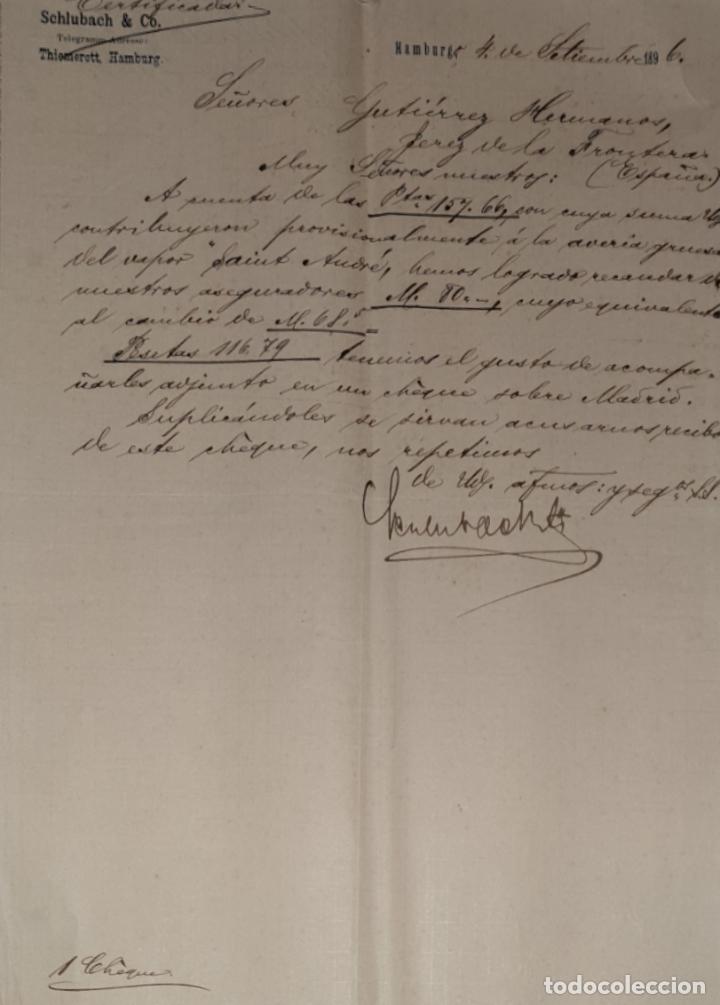 Certificada
Schlubach & Co.
Telegramm-Adresse:
Thiemerett, Hamburg.
Hamburg, 4. de Setiembre 1896.
Señores Gutiérrez Hermanos,
Jerez de la Frontera.
(España.)
Muy Señores nuestros:
A cuenta de las Ptas 157.66, con cuya suma Uds
contribuyeron provisionalmente á la avería gruesa
del vapor "Saint André, hemos logrado recaudar de
nuestros aseguradores M. 80.-, cuyo equivalente
al cambio de M. 68.5 =
Pesetas 116.79 tenemos el gusto de acompa-
ñarles adjunto en un chèque sobre Madrid.
Suplicándoles se sirvan acusarnos recibo
de este chèque, nos repetimos
de Uds. afmos: y seg.os S.S.
Schlubach & Co
1 Chèque
todocoleccion